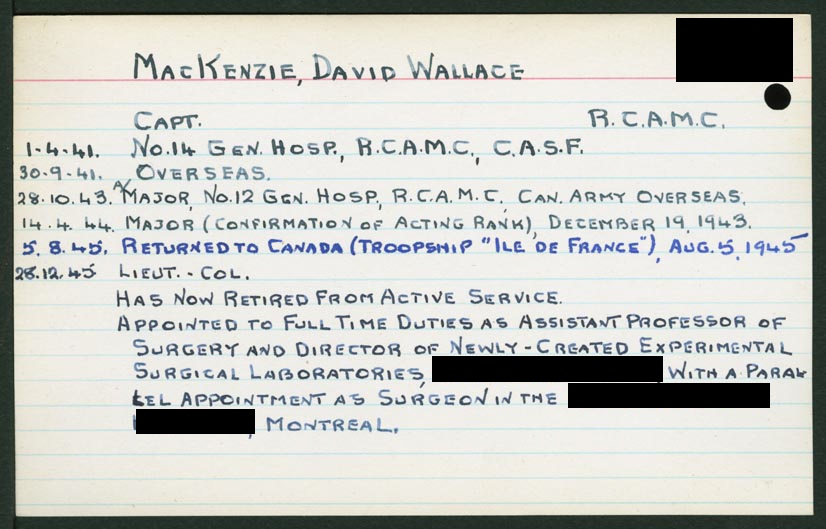 MACKENZIE, DAVID WALLACE
CAPT. R.C.A.M.C.
1-4-41. NO.14 GEN. HOSP., R.C.A.M.C., C.A.S.F.
30-9-41. OVERSEAS.
28.10.43. A/MAJOR, NO.12 GEN. HOSP, R.C.A.M.C, CAN. ARMY OVERSEAS.
14.4.44. MAJOR (CONFIRMATION OF ACTING RANK), DECEMBER 19, 1943.
5.8.45. RETURNED TO CANADA (TROOPSHIP "ILE DE FRANCE"), AUG. 5, 1945
28.12.45 LIEUT.-COL.
HAS NOW RETIRED FROM ACTIVE SERVICE.
APPOINTED TO FULL TIME DUTIES AS ASSISTANT PROFESSOR OF
SURGERY AND DIRECTOR OF NEWLY-CREATED EXPERIMENTAL
SURGICAL LABORATORIES, WITH A PARAL-
LEL APPOINTMENT AS SURGEON IN THE
, MONTREAL.